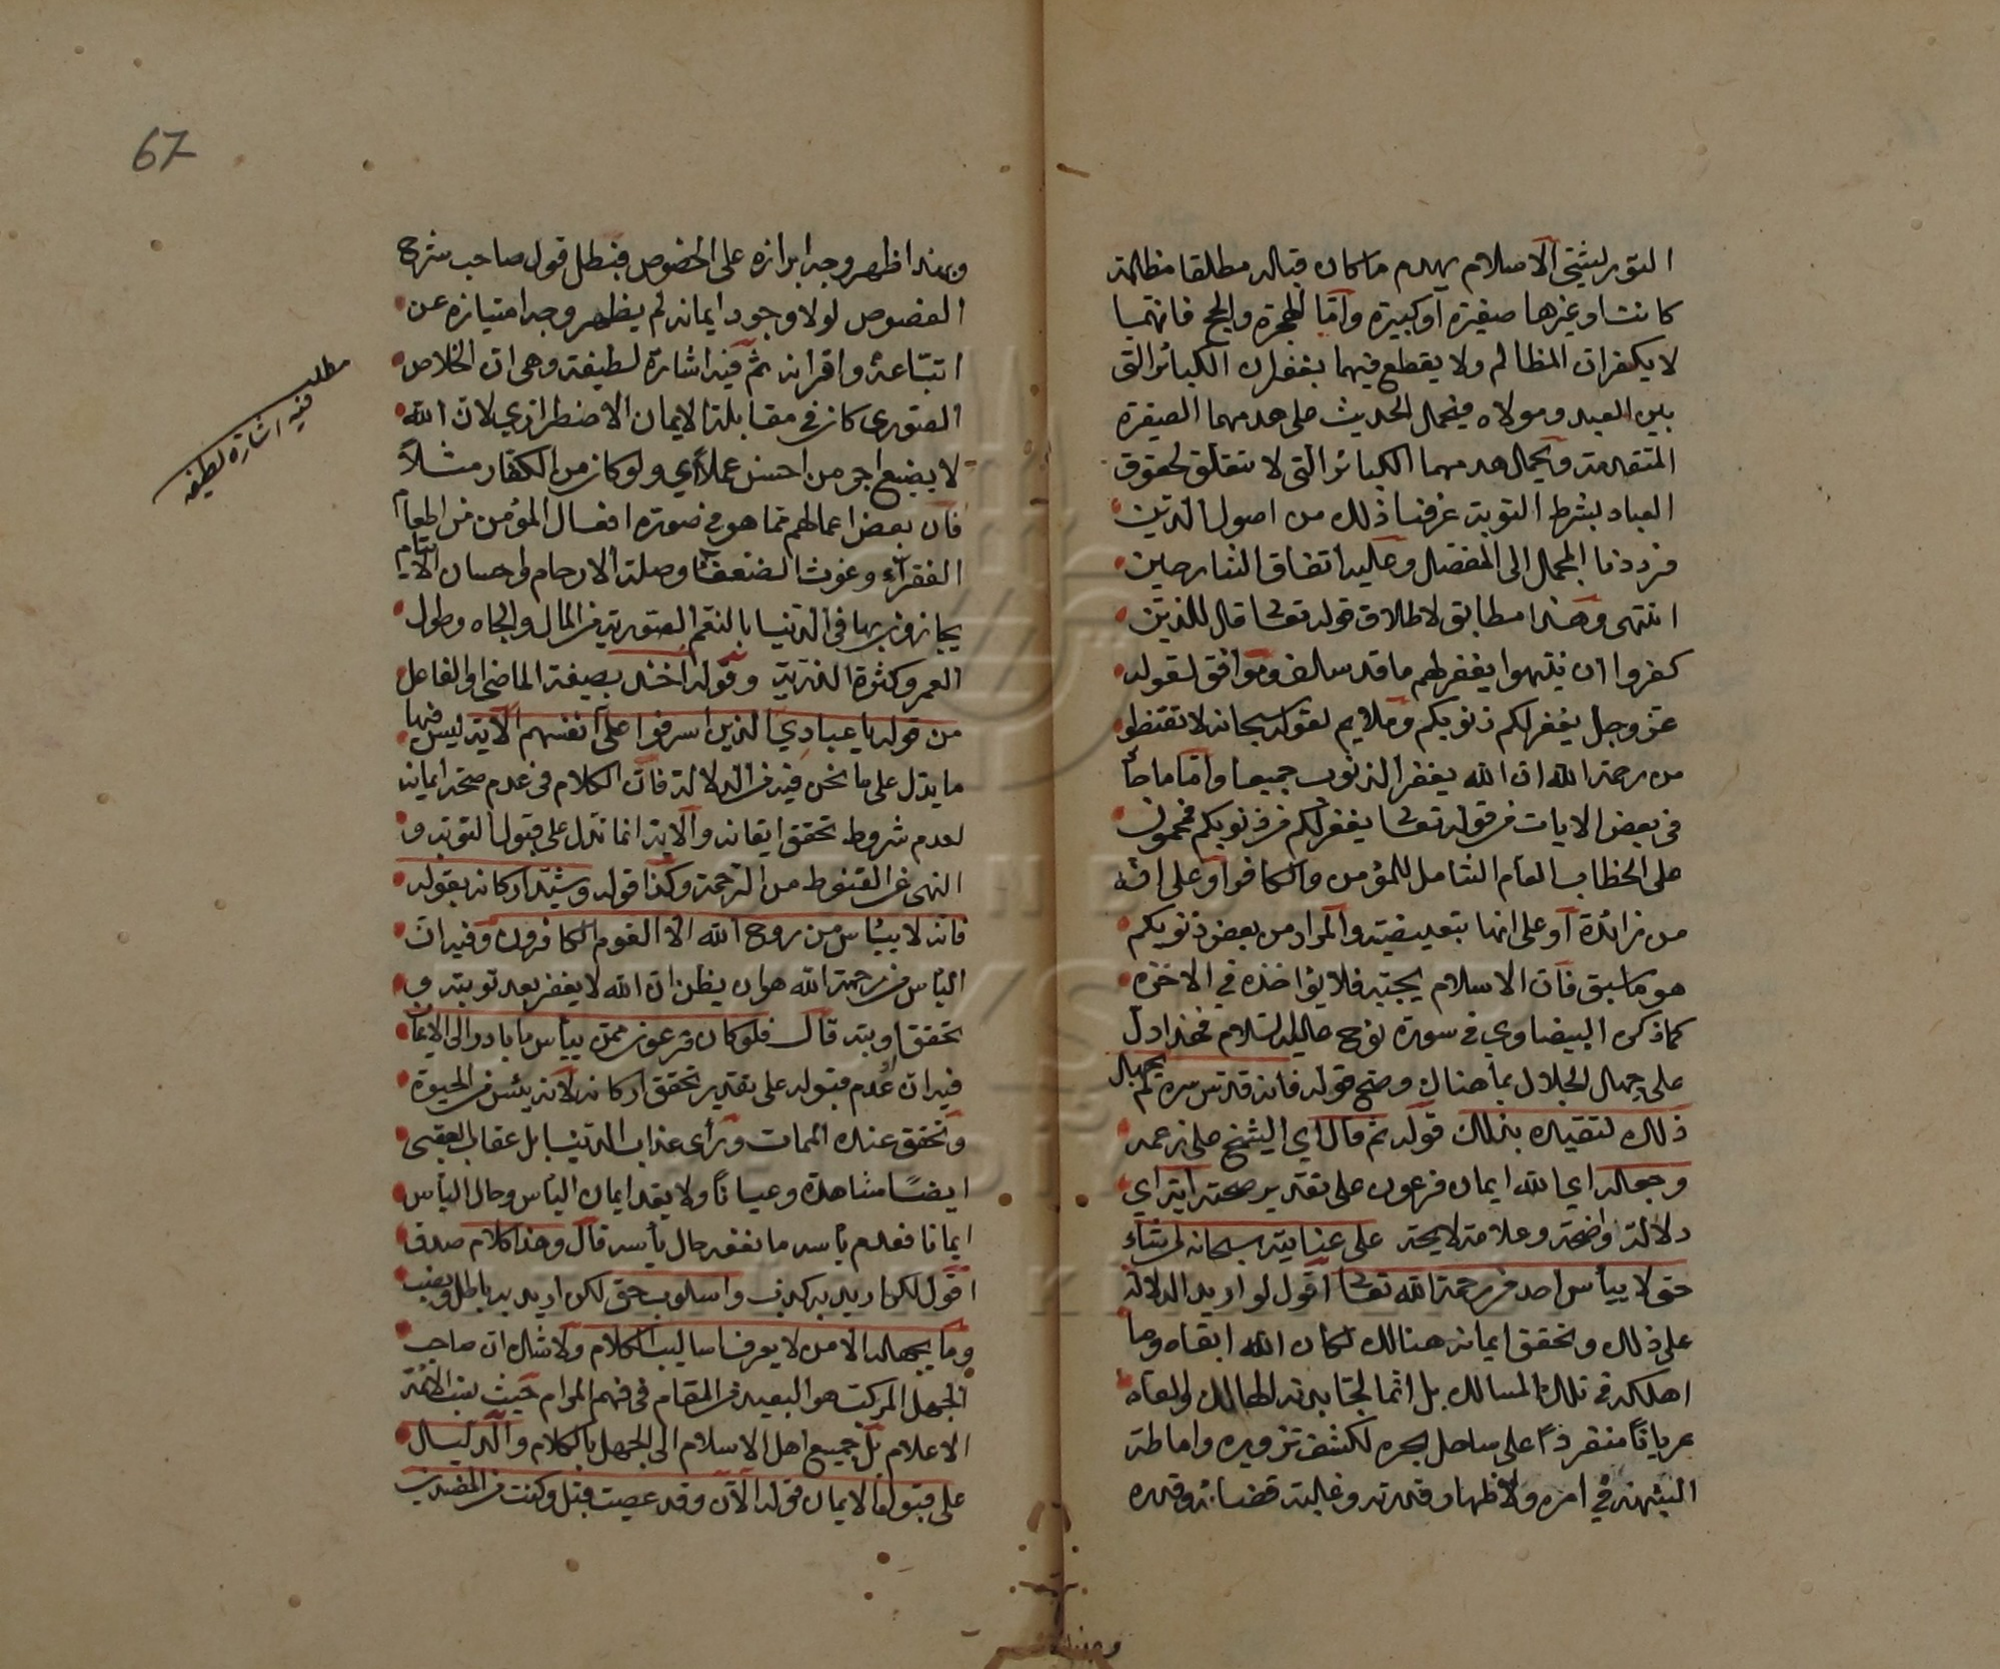 التوربشتي الاسلام يهدم ما كان قبله مطلقا مظلمة
كانت او غيرها صغيرة او كبيرة واما الهجرة والحج فانهما
لا يكفران المظالم ولا يقطع فيهما بغفران الكبائر التي
بين العبد ومولاه فيحمل الحديث على هدمهما الصغيرة
المتقدمة ويحمل هدمهما الكبائر التي لا تتعلق بحقوق
العباد بشرط التوبة عرفنا ذلك من اصول الدين
فرددنا المجمل الى المفصل وعليه اتفاق الشارحين
انتهى وهذا مطابق لاطلاق قوله تعالى قال للذين
كفروا ان ينتهوا يغفر لهم ما قد سلف وموافق لقوله
عز وجل يغفر لكم ذنوبكم وملايم لقوله سبحانه لا تقنطوا
من رحمة الله ان الله يغفر الذنوب جميعا واما ما جاء
في بعض الايات من قوله تعالى يغفر لكم من ذنوبكم فمحمول
على الخطاب العام الشامل للمؤمن والكافر او على ان
من زائدة او على انها تبعيضية والمراد من بعض ذنوبكم
هو ما سبق فان الاسلام يجبه فلا يؤاخذه في الاخرة
كما ذكره البيضاوي في سورة نوح عليه السلام فهذا دل
على جهل الجلال بما هنالك وصح قوله فانه قدس سره لم يجهل
ذلك لتقيده بذلك قوله ثم قال اي الشيخ على زعمه
وجعله اي الله ايمان فرعون على تقدير صحته آية اي
دلالة واضحة وعلامة لايحة على عنايته سبحانه لمن شاء
حتى لا ييأس احد من رحمة الله تعالى اقول لو اريد الدلالة
على ذلك وتحقق ايمانه هنالك لكان الله ابقاه وما
اهلكه في تلك المسالك بل انما نجا بدنه لطالك والقاه
عريانا منفردا على ساحل بحره لكشف تزويره واماطة
الشبهة في امره ولاظهار قدرته وغلبة قضائه وقدره
وبهذا
67
وبهذا ظهر وجه ابرازه على الخصوص فبطل قول صاحب شرح
الفصوص لولا وجود ايمانه لم يظهر وجه امتيازه عن
اتباعه واقرانه ثم فيه اشارة لطيفة وهي ان الخلاص
الصوري كان في مقابلة الايمان الاضطراري لان الله
لا يضيع اجر من احسن عملا اي ولو كان من الكفار مثلا
فان بعض اعمالهم مما هو في صورة افعال المؤمن من اطعام
الفقراء وغوث الضعفاء وصلة الارحام واحسان الايتام
يجازون بها في الدنيا بالنعم الصورية من المال والجاه وطول
العمر وكثرة الذرية وقوله اخذ بصيغة الماضي او الفاعل
من قوله يا عبادي الذين اسرفوا على انفسهم الآية ليس فيها
ما يدل على ما نحن فيه من الدلالة فان الكلام في عدم صحة ايمانه
لعدم شروط تحقق ايقانه والآية انما تدل على قبول التوبة و
النهي عن القنوط من الرحمة وكذا قوله وشيد اركانه بقوله
فانه لا ييأس من روح الله الا القوم الكافرون وفيه ان
اليأس من رحمة الله هو ان يظن ان الله لا يغفر بعد توبته و
تحقق اوبته قال فلو كان فرعون ممن ييأس ما بادر الى الايمان
فيه ان عدم قبوله على تقدير تحقق اركانه لانه يئس من الحيوة
وتحقق عنده الممات ورأى عذاب الدنيا بل عقاب العقبى
ايضا مشاهدة وعيانا ولا يعد ايمان اليأس وحال اليأس
ايمانا فعدم يأسه ما نفعه حال يأسه قال وهذا كلام صدق
اقول لكن اريد به كذب واسلوب حق لكن اريد به باطل وعيب
وما يجهله الا من لا يعرف اساليب الكلام ولا شك ان صاحب
الجهل المركب هو البعيد من المقام في فهم المرام حيث نسب الائمة
الاعلام بل جميع اهل الاسلام الى الجهل بالكلام والدليل
على قبول الايمان قوله الآن وقد عصيت قبل وكنت من المفسدين
مطلب
فيه اشارة لطيفه